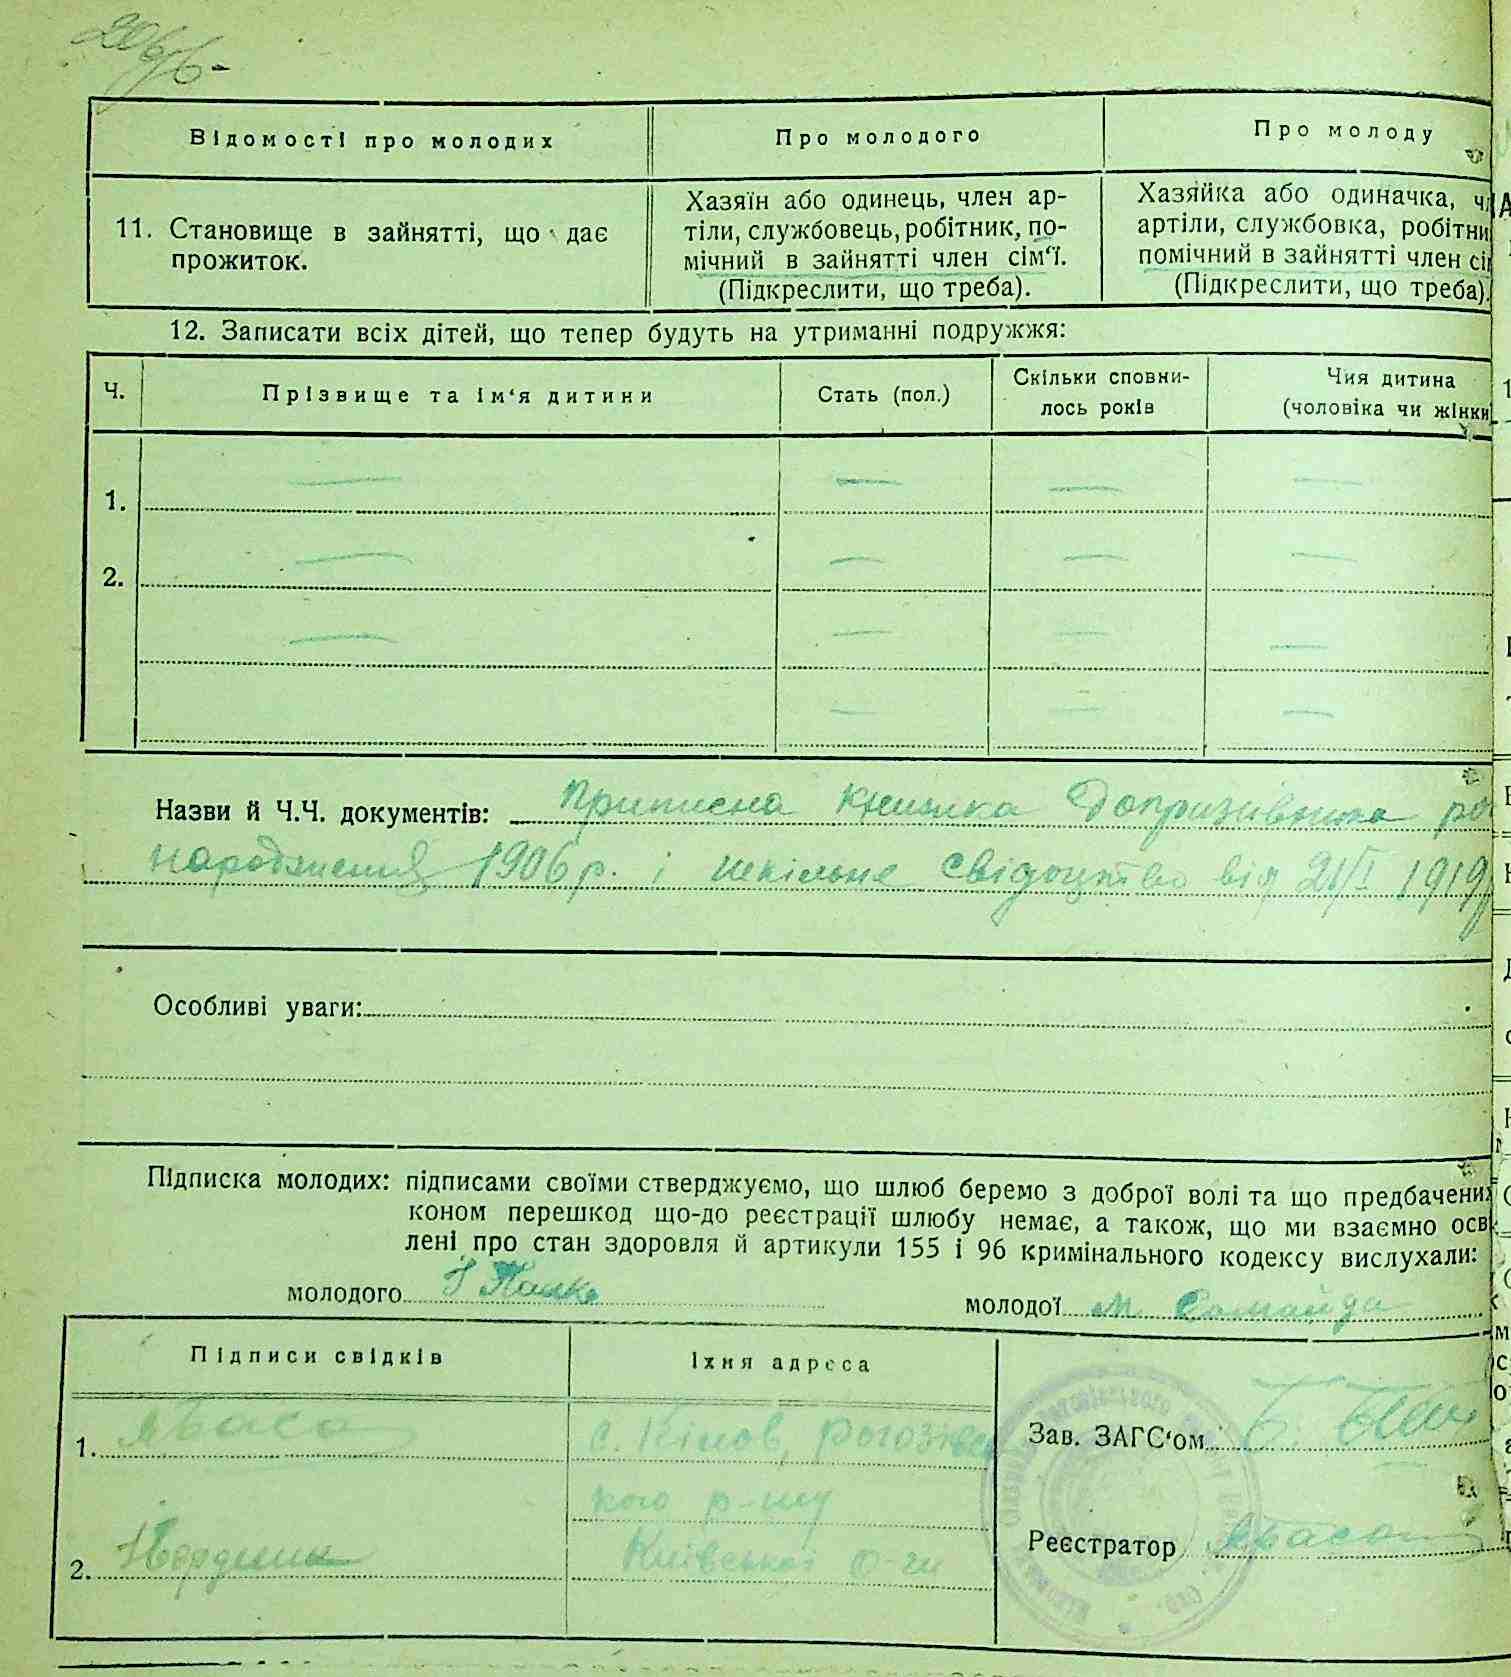 Відомості про молодих Про молодого Про молоду
11. Становище в зайнятті, що дає прожиток.
Хазяїн або одинець, член ар-
тіли, службовець, робітник, по-
мічний в зайнятті член сім'ї.
(Підкреслити, що треба).
Хазяйка або одиначка, чл
артіли, службовка, робітни
помічний в зайнятті член сім
(Підкреслити, що треба).
12. Записати всіх дітей, що тепер будуть на утриманні подружжя:
Ч. Прізвище та ім'я дитини Стать (пол.) Скільки сповни-
лось років Чия дитина
(чоловіка чи жінки
1.
2.
Назви й Ч.Ч. документів: Приписна книжка допризивника ро
народження 1906 р. і шкільне свідоцтво від 1919
Особливі уваги:
Підписка молодих: підписами своїми стверджуємо, що шлюб беремо з доброї волі та що предбачених
коном перешкод що-до реєстрації шлюбу немає, а також, що ми взаємно осв
лені про стан здоровля й артикули 155 і 96 кримінального кодексу вислухали:
молодого
молодої М. Самайда
Підписи свідків Їхня адреса
1. с. Рогозівсь
кого р-ну
2. Київської о-ги
Зав. ЗАГС'ом
Реєстратор